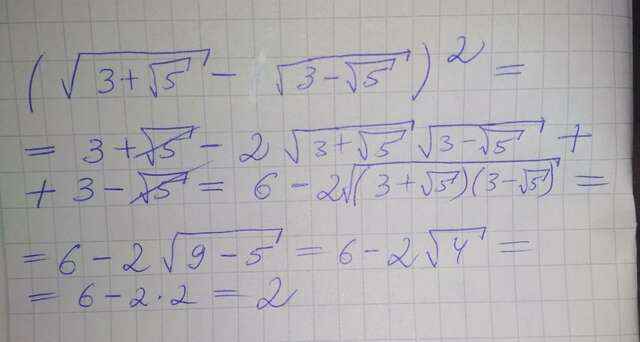 (√(3+√5) - √(3-√5))² =
= 3+√5 - 2√(3+√5) √(3-√5) +
+ 3-√5 = 6 - 2√((3+√5)(3-√5)) =
= 6 - 2√(9-5) = 6 - 2√4 =
= 6 - 2·2 = 2